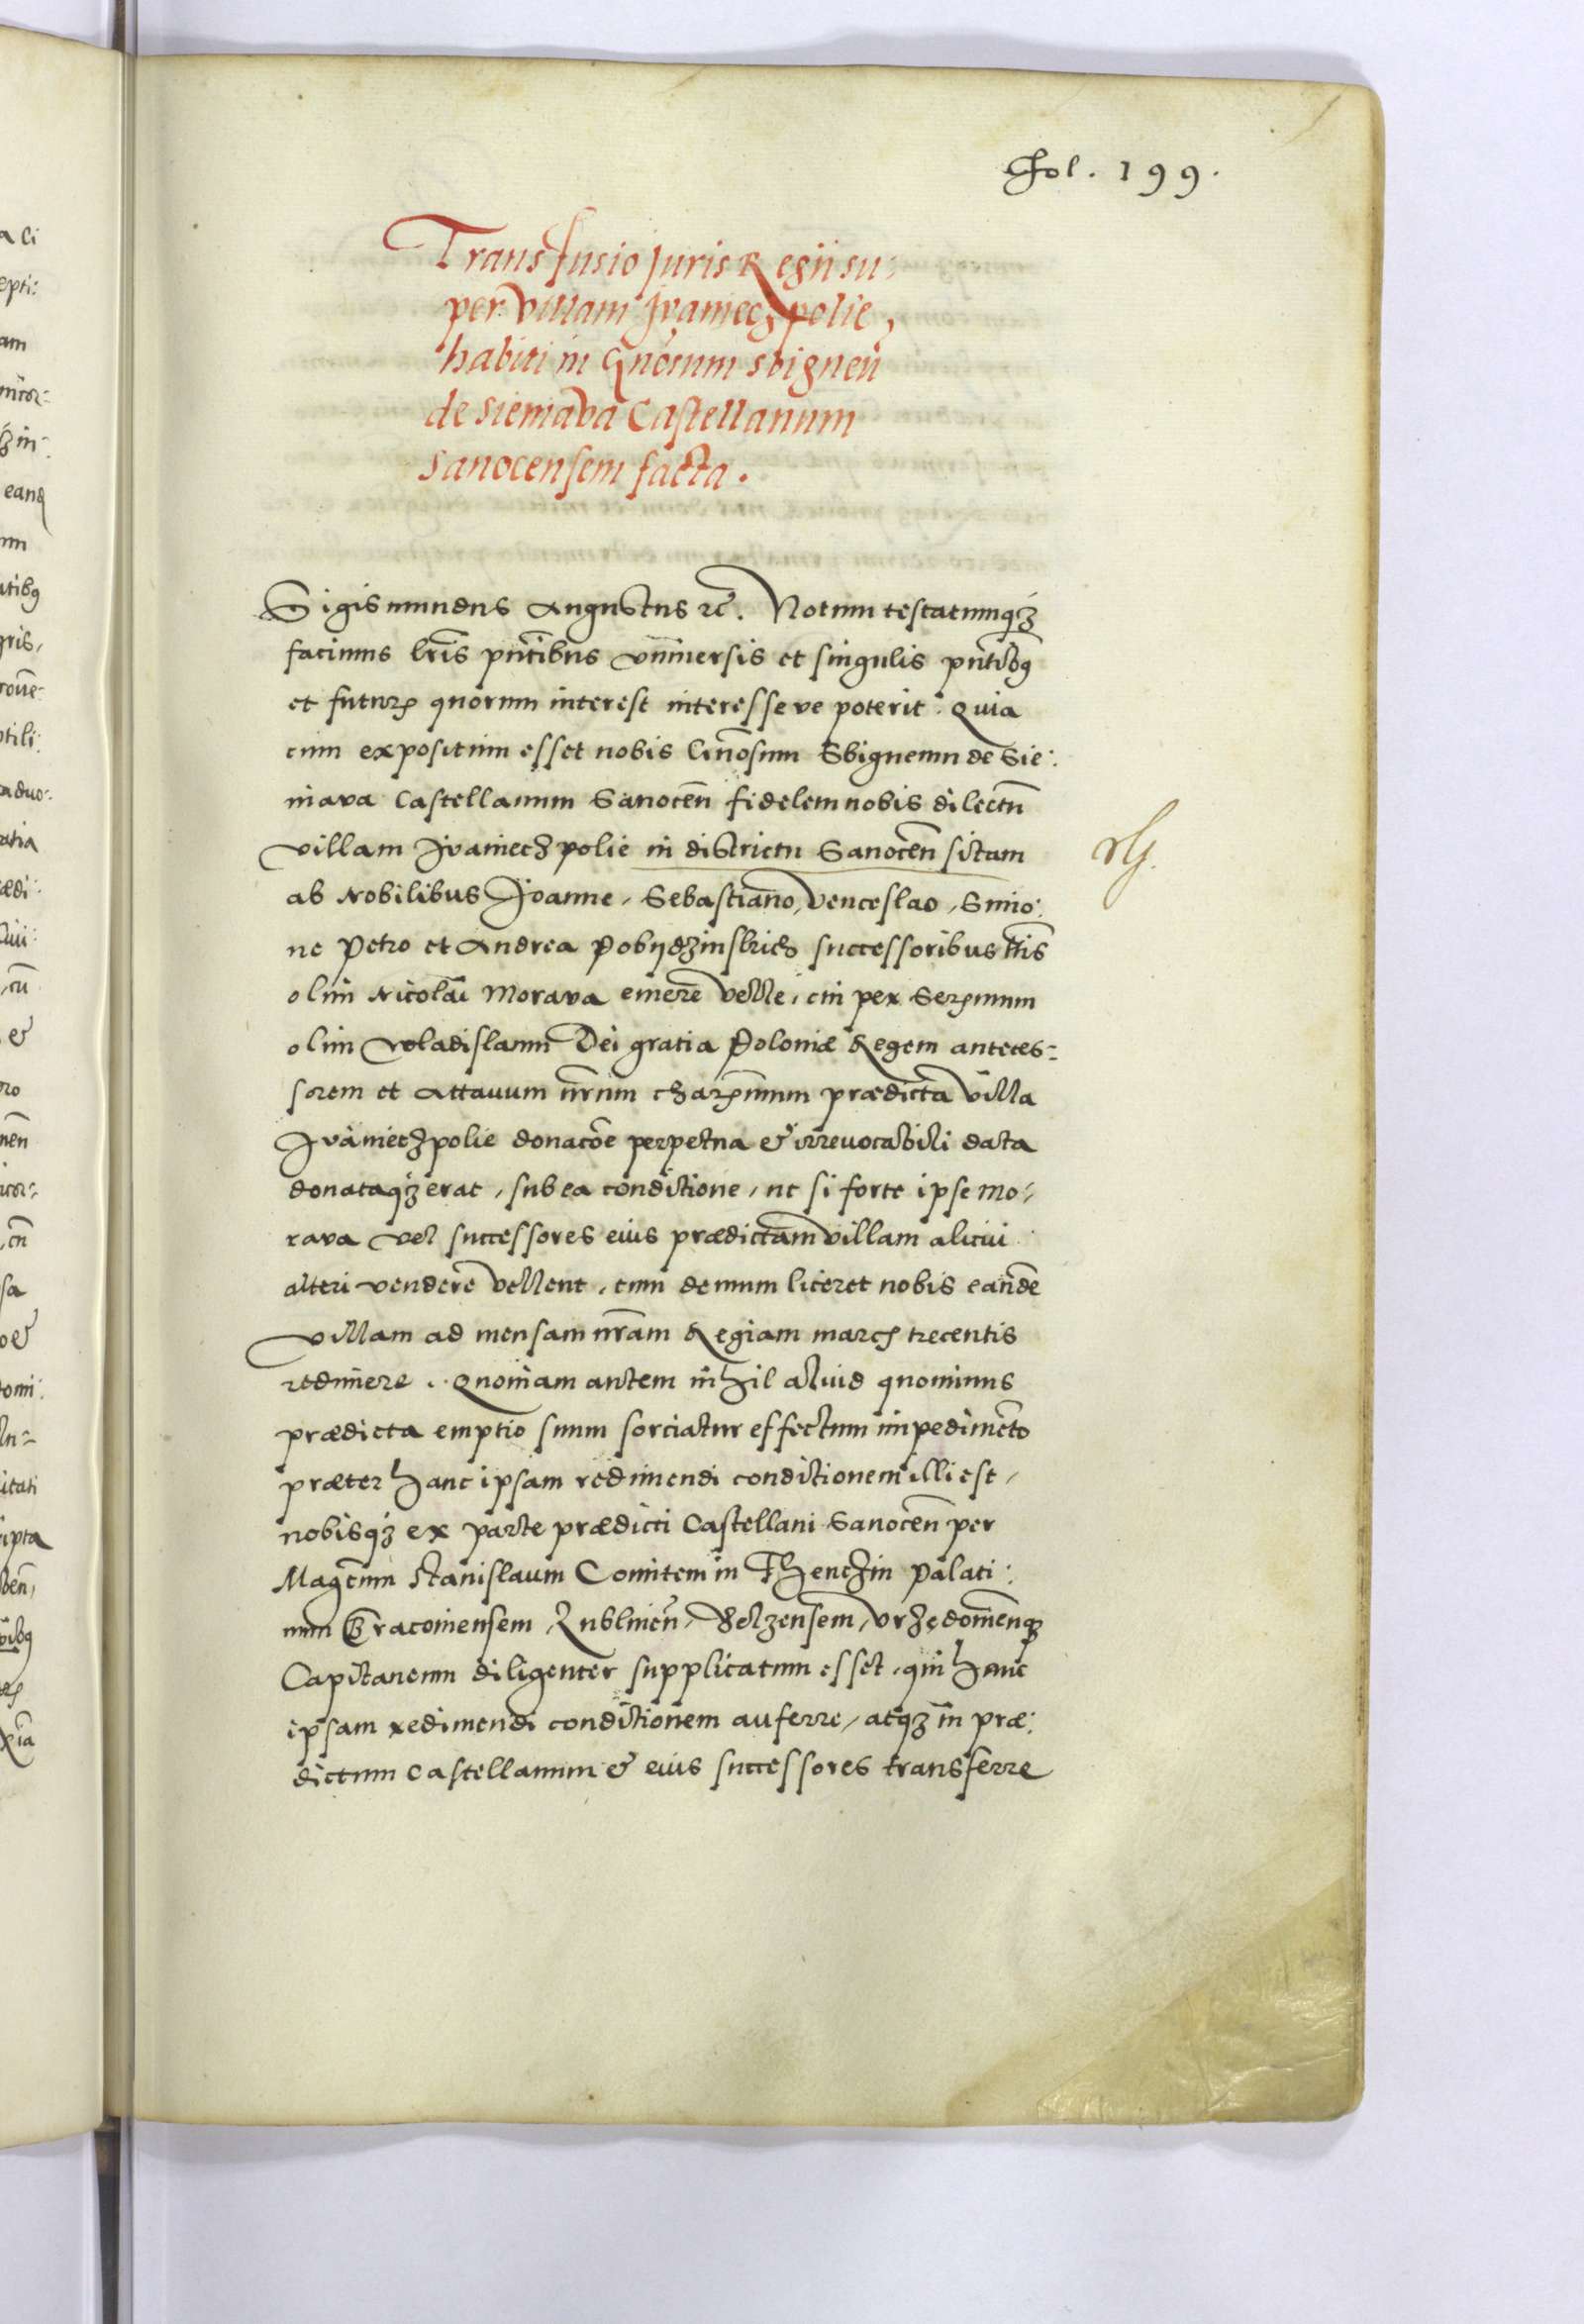 Fol. 199.
Transfusio juris Regii su:
per villam Jvaniecz polie,
habiti in Gnōsum Sbigneū
de Sieniava Castellanum
Sanocensem facta.
Sigismundus Augustus rc̄. Notum testatumqꝫ
facimus lr̄is pn̄tibus vniuersis et singulis pn̄tibꝰ
et futurꝭ quorum interest interesse ve poterit: Quia
cum expositum esset nobis Gn̄osum Sbigneum de Sie:
niava Castellanum Sanocen̄ fidelem nobis dilectū
villam Jvaniecz polie in districtu Sanocen̄ sitam
ab Nobilibus Joanne, Sebastiano, Venceslao, Simo:
ne Petro et Andrea Pobijdzinskich successoribus
olim Nicolai Morava emere velle, cui per Serꝭmum
olim Vladislaum Dei gratia Poloniæ Regem anteces:
sorem et Attauum nr̄um charꝭmum prædicta villa
Jvaniecz polie donacōe perpetua & irreuocabili data
donataqꝫ erat, sub ea conditione, ut si forte ipse Mo:
rava vel successores eius prædictam villam alicui
alteri vendere vellent, cum demum liceret nobis eandē
villam ad mensam nr̄am Regiam marcꝭ trecentis
redimere. Quoniam autem nihil aliud quominus
prædicta emptio suum sorciatur effectum impedimēto
præter hanc ipsam redimendi conditionem illi est,
nobisqꝫ ex parte prædicti Castellani Sanocen̄ per
Magcum Stanislaum Comitem in Thenczin Palati:
num Cracoviensem, Lublinen̄, Belzensem, Vrzędomenqꝫ
Capitaneum diligenter supplicatum esset, quin hanc
ipsam redimendi conditionem auferre, atqꝫ in præ:
dictum Castellanum & eius successores transferre